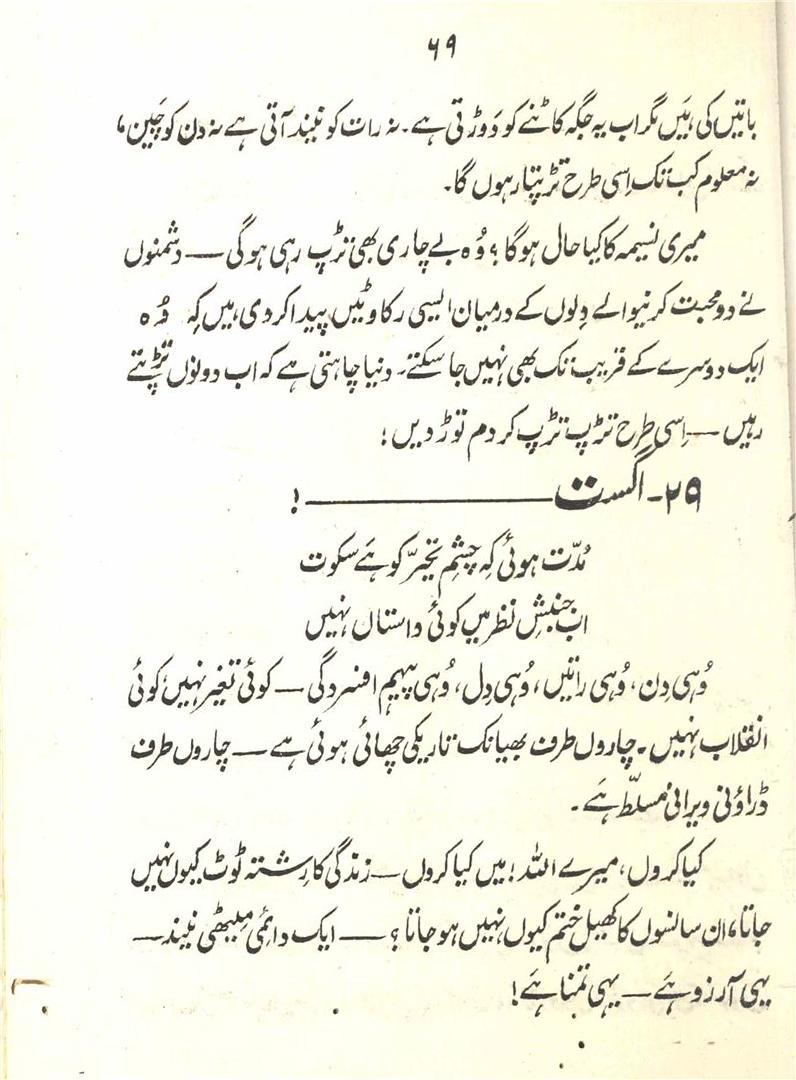 ۶۹
باتیں کی ہیں مگر اب یہ جگہ کاٹنے کو دَوڑتی ہے۔ نہ رات کو نیند آتی ہے نہ دن کو چَین،
نہ معلوم کب تک اِسی طرح تڑپتا رہوں گا۔
میری نسیمہ کا کیا حال ہوگا؟ وُہ بے چاری بھی تڑپ رہی ہوگی — دشمنوں
نے دو محبت کرنیوالے دِلوں کے درمیان ایسی رکاوٹیں پیدا کر دی ہیں کِہ وُہ
ایک دوسرے کے قریب تک بھی نہیں جا سکتے۔ دنیا چاہتی ہے کہ اب دونوں تڑپتے
رہیں — اِسی طرح تڑپ تڑپ کر دم توڑ دیں!
۲۹۔ اگست ——— !
مُدّت ہوئی کِہ چشمِ تحیّر کو ہَے سکوت
اب جنبشِ نظر میں کوئی داستاں نہیں
وُہی دِن، وُہی راتیں، وُہی دِل، وُہی پیہم افسردگی — کوئی تغیر نہیں، کوئی
انقلاب نہیں۔ چاروں طرف بھیانک تاریکی چھائی ہوئی ہے — چاروں طرف
ڈراؤنی ویرانی مُسلّط ہَے۔
کیا کروں، میرے اللہ! میں کیا کروں — زندگی کا رِشتہ ٹوٹ کیوں نہیں
جاتا، ان سانسوں کا کھیل ختم کیوں نہیں ہو جاتا؟ — ایک دائمی مِیٹھی نیند —
یہی آرزو ہَے — یہی تمنا ہَے!